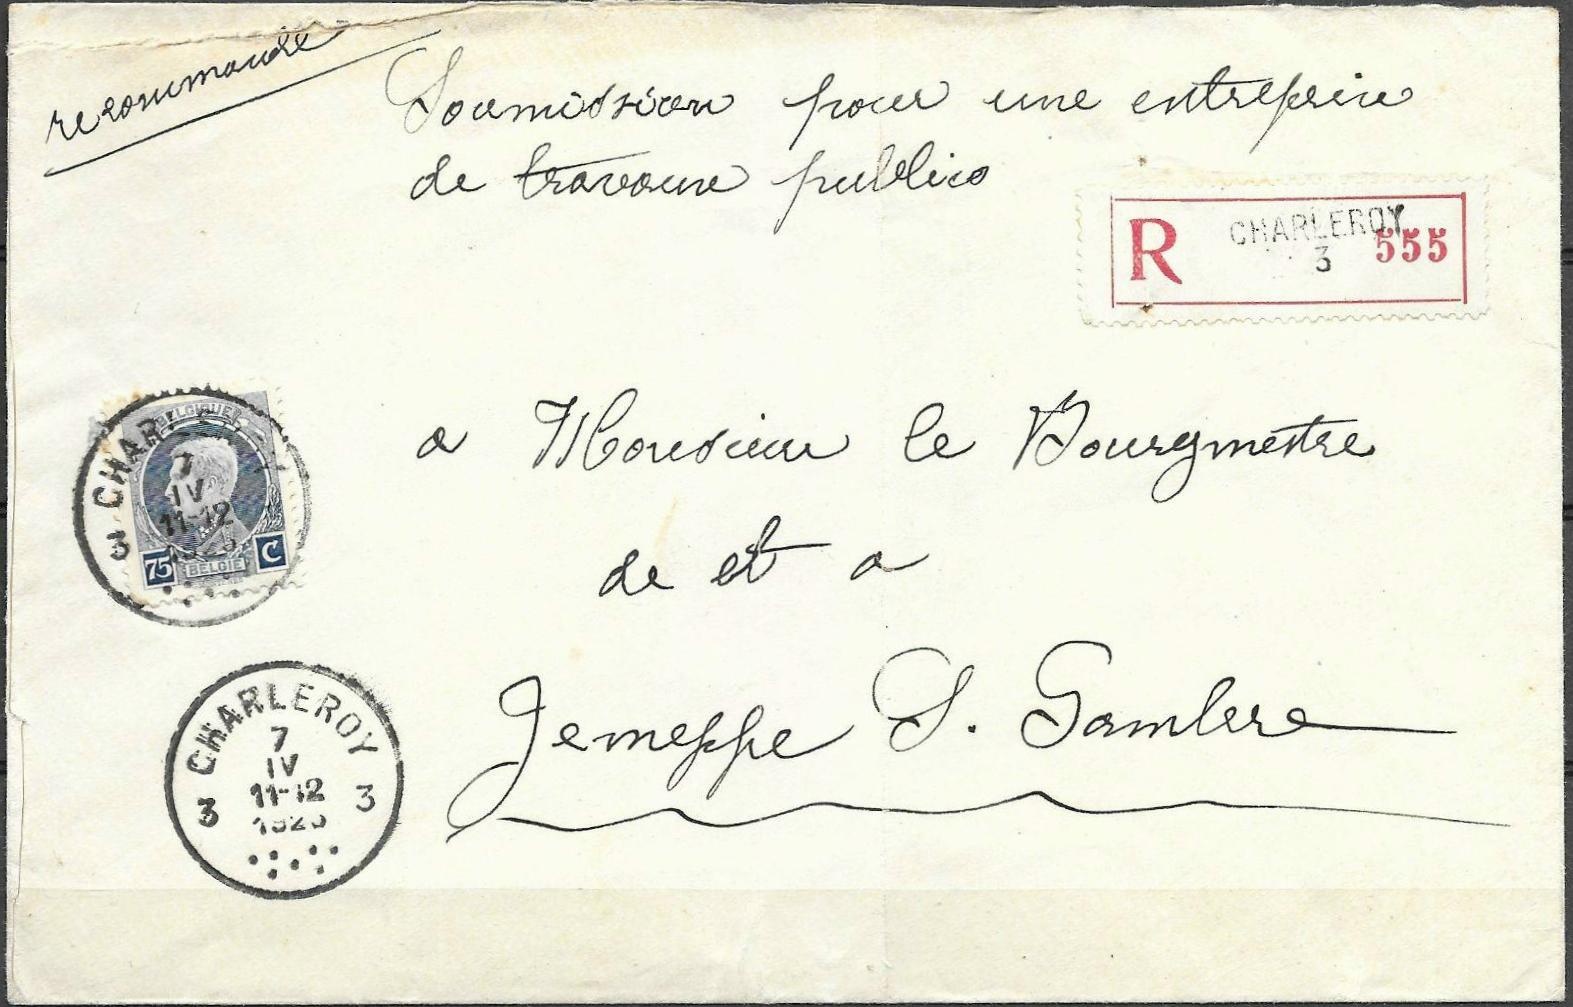 recommandé
Soumission pour une entreprise
de travaux publics
R CHARLEROY 555
3
a Monsieur le Bourgmestre
de et a
Jemeppe S. Sambre
BELGIQUE
7
IV
11-12
3
75 BELGIE C
CHARLEROY
7
IV
3 11-12 3